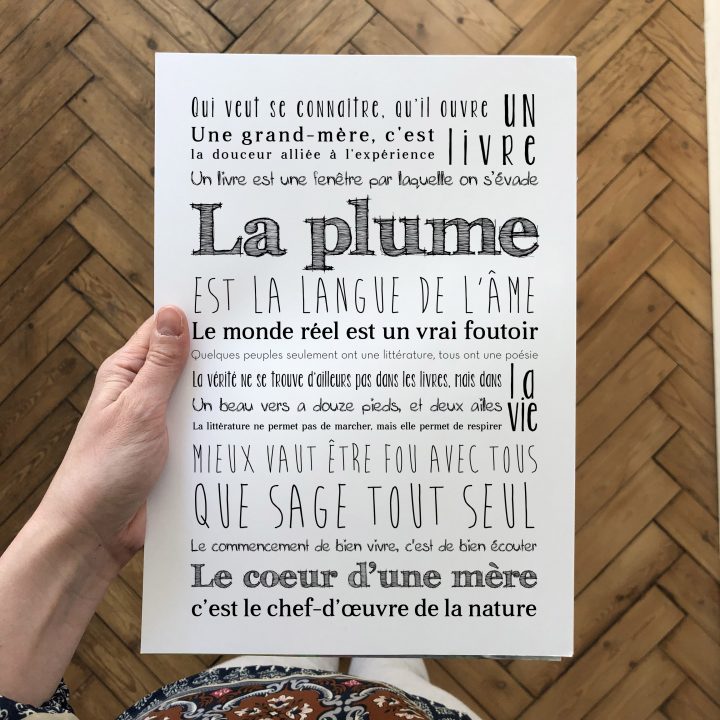 Qui veut se connaître, qu'il ouvre un livre
Une grand-mère, c'est
la douceur alliée à l'expérience
Un livre est une fenêtre par laquelle on s'évade
La plume
EST LA LANGUE DE L'ÂME
Le monde réel est un vrai foutoir
Quelques peuples seulement ont une littérature, tous ont une poésie
La vérité ne se trouve d'ailleurs pas dans les livres, mais dans la vie
Un beau vers a douze pieds, et deux ailes
La littérature ne permet pas de marcher, mais elle permet de respirer
MIEUX VAUT ÊTRE FOU AVEC TOUS
QUE SAGE TOUT SEUL
Le commencement de bien vivre, c'est de bien écouter
Le coeur d'une mère
c'est le chef-d'œuvre de la nature